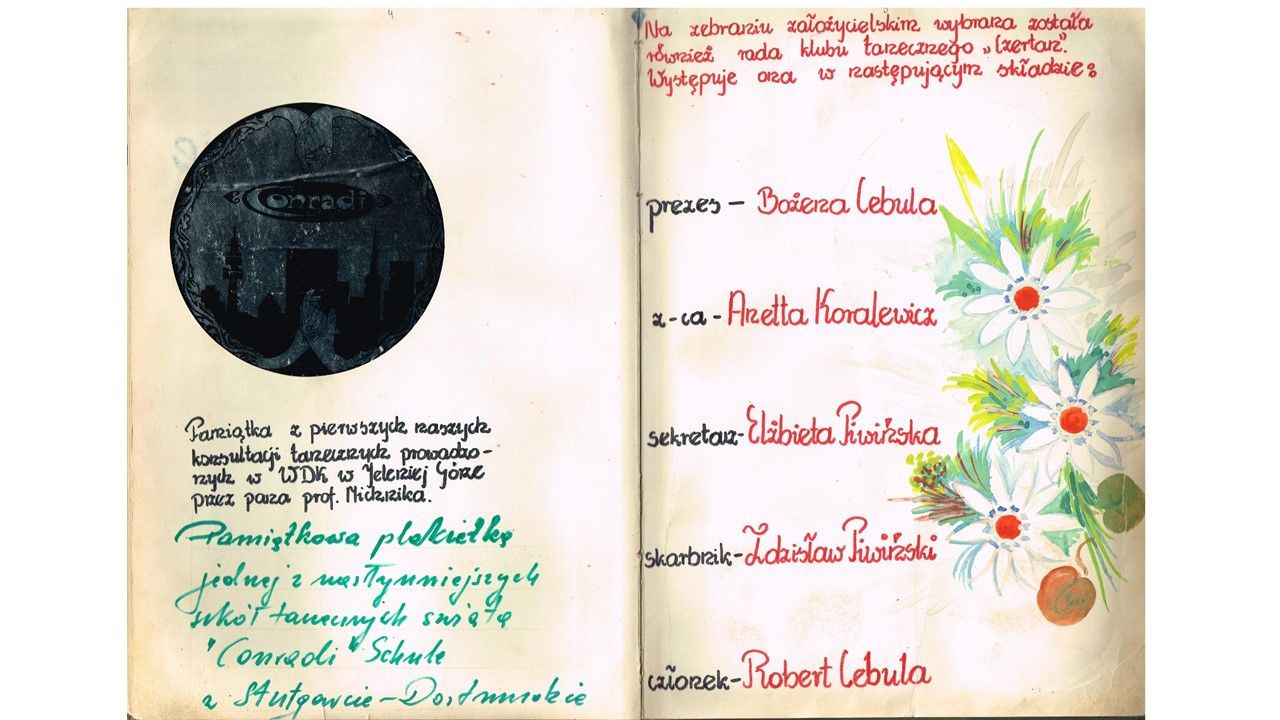 Conradi
Pamiątka z pierwszych naszych
konsultacji tanecznych prowadzo-
nych w WDK w Jeleniej Górze
przez pana prof.
Pamiątkowa plakietkę
jednej z nasłynniejszych
szkół tanecznych świata
"Conradi" Schule
z Stutgarcie -
Na zebraniu założycielskim wybrana została
również rada klubu tanecznego „Czertan".
Występuje ona w następującym składzie:
prezes - Bożena Cebula
z-ca - Anetta Koralewicz
sekretarz - Elżbieta Piwińska
skarbnik - Zdzisław Piwiński
członek - Robert Cebula